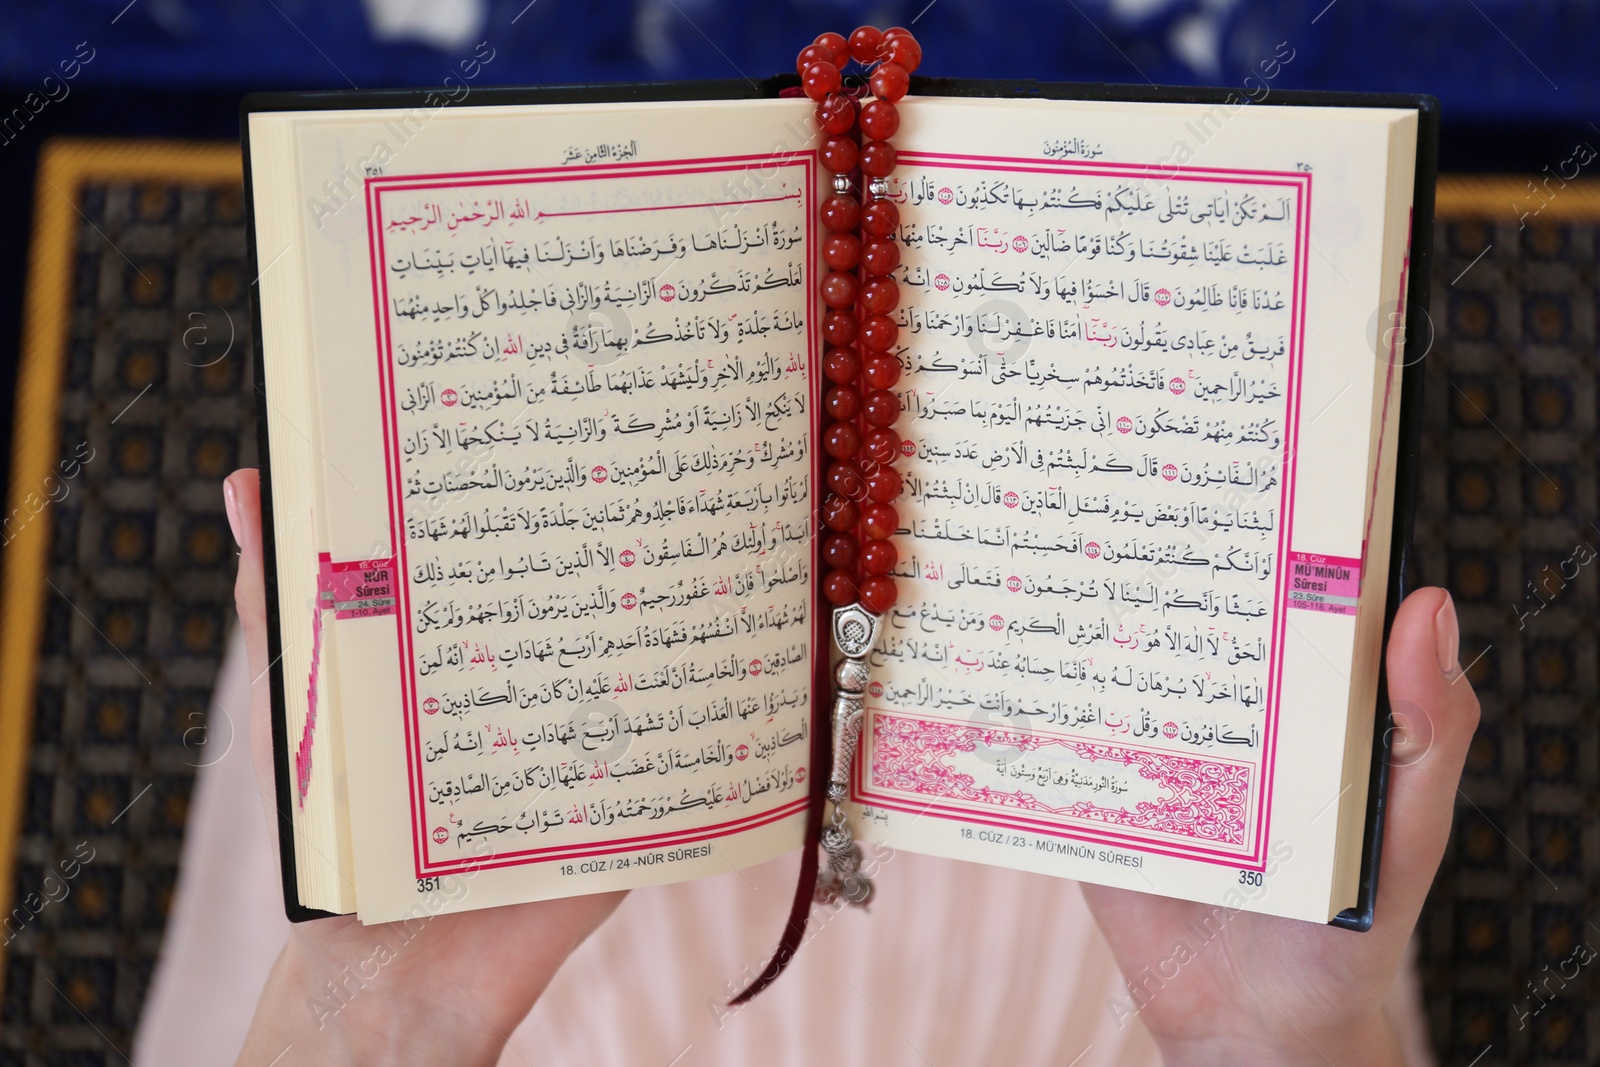 سُورَةُ الْمُؤْمِنُونَ ٣٥٠
اَلَمْ تَكُنْ اٰيَاتٖي تُتْلٰى عَلَيْكُمْ فَكُنْتُمْ بِهَا تُكَذِّبُونَ ﴿١٠٥﴾ قَالُوا
غَلَبَتْ عَلَيْنَا شِقْوَتُنَا وَكُنَّا قَوْمًا ضَٓالّٖينَ ﴿١٠٦﴾ رَبَّنَٓا اَخْرِجْنَا مِنْهَا
عُدْنَا فَاِنَّا ظَالِمُونَ ﴿١٠٧﴾ قَالَ اخْسَؤُا فٖيهَا وَلَا تُكَلِّمُونِ ﴿١٠٨﴾ اِنَّهُ
فَرٖيقٌ مِنْ عِبَادٖي يَقُولُونَ رَبَّنَٓا اٰمَنَّا فَاغْفِرْ لَنَا وَارْحَمْنَا
خَيْرُ الرَّاحِمٖينَ ﴿١٠٩﴾ فَاتَّخَذْتُمُوهُمْ سِخْرِيًّا حَتّٰٓى اَنْسَوْكُمْ
وَكُنْتُمْ مِنْهُمْ تَضْحَكُونَ ﴿١١٠﴾ اِنّٖي جَزَيْتُهُمُ الْيَوْمَ بِمَا صَبَرُٓوا
هُمُ الْفَٓائِزُونَ ﴿١١١﴾ قَالَ كَمْ لَبِثْتُمْ فِي الْاَرْضِ عَدَدَ سِنٖينَ ﴿١١٢﴾
لَبِثْنَا يَوْمًا اَوْ بَعْضَ يَوْمٍ فَسْـَٔلِ الْعَٓادّٖينَ ﴿١١٣﴾ قَالَ اِنْ لَبِثْتُمْ اِلَّا
لَوْ اَنَّكُمْ كُنْتُمْ تَعْلَمُونَ ﴿١١٤﴾ اَفَحَسِبْتُمْ اَنَّمَا خَلَقْنَاكُمْ
عَبَثًا وَاَنَّكُمْ اِلَيْنَا لَا تُرْجَعُونَ ﴿١١٥﴾ فَتَعَالَى اللّٰهُ
الْحَقُّ لَٓا اِلٰهَ اِلَّا هُوَ رَبُّ الْعَرْشِ الْكَرٖيمِ ﴿١١٦﴾ وَمَنْ يَدْعُ مَعَ
اِلٰهًا اٰخَرَ لَا بُرْهَانَ لَهُ بِهٖ فَاِنَّمَا حِسَابُهُ عِنْدَ رَبِّهٖ اِنَّهُ لَا يُفْلِحُ
الْكَافِرُونَ ﴿١١٧﴾ وَقُلْ رَبِّ اغْفِرْ وَارْحَمْ وَاَنْتَ خَيْرُ الرَّاحِمٖينَ ﴿١١٨﴾
سُورَةُ النُّورِ مَدَنِيَّةٌ وَهِيَ اَرْبَعٌ وَسِتُّونَ اٰيَةً
18. Cüz
MÜ'MİNÛN
Sûresi
23. Sûre
105-118. Ayet
18. CÜZ / 23 - MÜ'MİNÛN SÛRESİ
350
٣٥١ اَلْجُزْءُ الثَّامِنَ عَشَرَ
بِسْمِ اللّٰهِ الرَّحْمٰنِ الرَّحٖيمِ
سُورَةٌ اَنْزَلْنَاهَا وَفَرَضْنَاهَا وَاَنْزَلْنَا فٖيهَٓا اٰيَاتٍ بَيِّنَاتٍ
لَعَلَّكُمْ تَذَكَّرُونَ ﴿١﴾ اَلزَّانِيَةُ وَالزَّانٖي فَاجْلِدُوا كُلَّ وَاحِدٍ مِنْهُمَا
مِائَةَ جَلْدَةٍ وَلَا تَأْخُذْكُمْ بِهِمَا رَأْفَةٌ فٖي دٖينِ اللّٰهِ اِنْ كُنْتُمْ تُؤْمِنُونَ
بِاللّٰهِ وَالْيَوْمِ الْاٰخِرِ وَلْيَشْهَدْ عَذَابَهُمَا طَٓائِفَةٌ مِنَ الْمُؤْمِنٖينَ ﴿٢﴾ اَلزَّانٖي
لَا يَنْكِحُ اِلَّا زَانِيَةً اَوْ مُشْرِكَةً وَالزَّانِيَةُ لَا يَنْكِحُهَٓا اِلَّا زَانٍ
اَوْ مُشْرِكٌ وَحُرِّمَ ذٰلِكَ عَلَى الْمُؤْمِنٖينَ ﴿٣﴾ وَالَّذٖينَ يَرْمُونَ الْمُحْصَنَاتِ ثُمَّ
لَمْ يَأْتُوا بِاَرْبَعَةِ شُهَدَٓاءَ فَاجْلِدُوهُمْ ثَمَانٖينَ جَلْدَةً وَلَا تَقْبَلُوا لَهُمْ شَهَادَةً
اَبَدًا وَاُولٰٓئِكَ هُمُ الْفَاسِقُونَ ﴿٤﴾ اِلَّا الَّذٖينَ تَابُوا مِنْ بَعْدِ ذٰلِكَ
وَاَصْلَحُوا فَاِنَّ اللّٰهَ غَفُورٌ رَحٖيمٌ ﴿٥﴾ وَالَّذٖينَ يَرْمُونَ اَزْوَاجَهُمْ وَلَمْ يَكُنْ
لَهُمْ شُهَدَٓاءُ اِلَّٓا اَنْفُسُهُمْ فَشَهَادَةُ اَحَدِهِمْ اَرْبَعُ شَهَادَاتٍ بِاللّٰهِ اِنَّهُ لَمِنَ
الصَّادِقٖينَ ﴿٦﴾ وَالْخَامِسَةُ اَنَّ لَعْنَتَ اللّٰهِ عَلَيْهِ اِنْ كَانَ مِنَ الْكَاذِبٖينَ ﴿٧﴾
وَيَدْرَؤُا عَنْهَا الْعَذَابَ اَنْ تَشْهَدَ اَرْبَعَ شَهَادَاتٍ بِاللّٰهِ اِنَّهُ لَمِنَ
الْكَاذِبٖينَ ﴿٨﴾ وَالْخَامِسَةَ اَنَّ غَضَبَ اللّٰهِ عَلَيْهَٓا اِنْ كَانَ مِنَ الصَّادِقٖينَ
﴿٩﴾ وَلَوْلَا فَضْلُ اللّٰهِ عَلَيْكُمْ وَرَحْمَتُهُ وَاَنَّ اللّٰهَ تَوَّابٌ حَكٖيمٌ ﴿١٠﴾
18. Cüz
NÛR
Sûresi
24. Sûre
1-10. Ayet
18. CÜZ / 24 -NÛR SÛRESİ
351
Africa Images